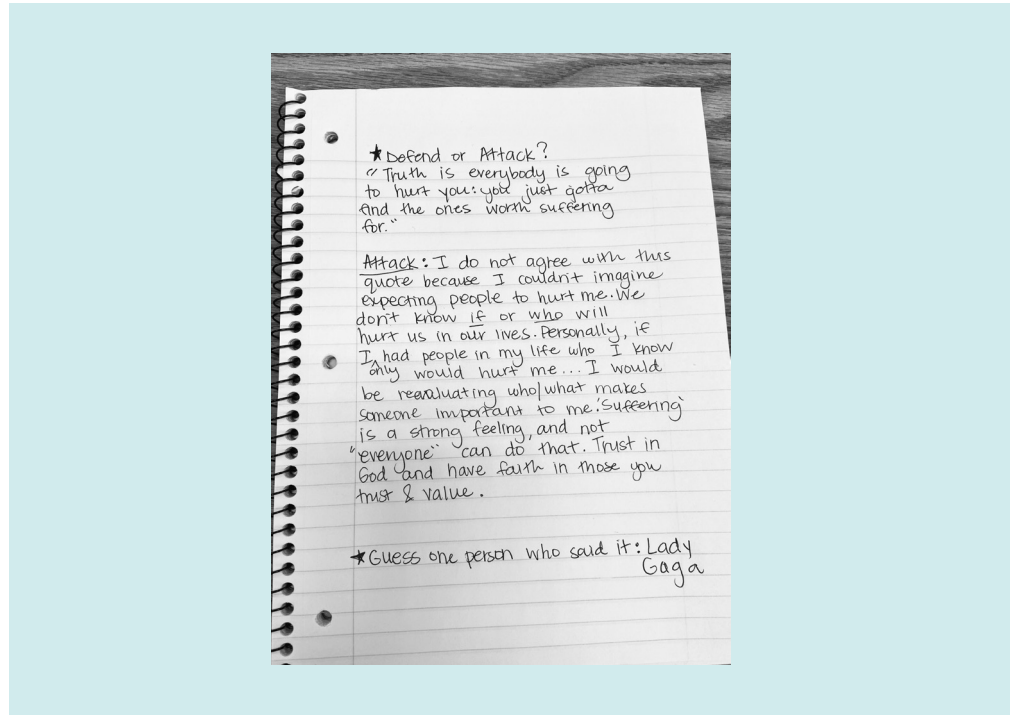 ★Defend or Attack?
"Truth is everybody is going
to hurt you: you just gotta
find the ones worth suffering
for."
Attack: I do not agree with this
quote because I couldn't imagine
expecting people to hurt me. We
don't know if or who will
hurt us in our lives. Personally, if
I ^only had people in my life who I know
would hurt me... I would
be reevaluating who/what makes
someone important to me. 'Suffering'
is a strong feeling, and not
"everyone" can do that. Trust in
God and have faith in those you
trust & value.
★Guess one person who said it: Lady
Gaga